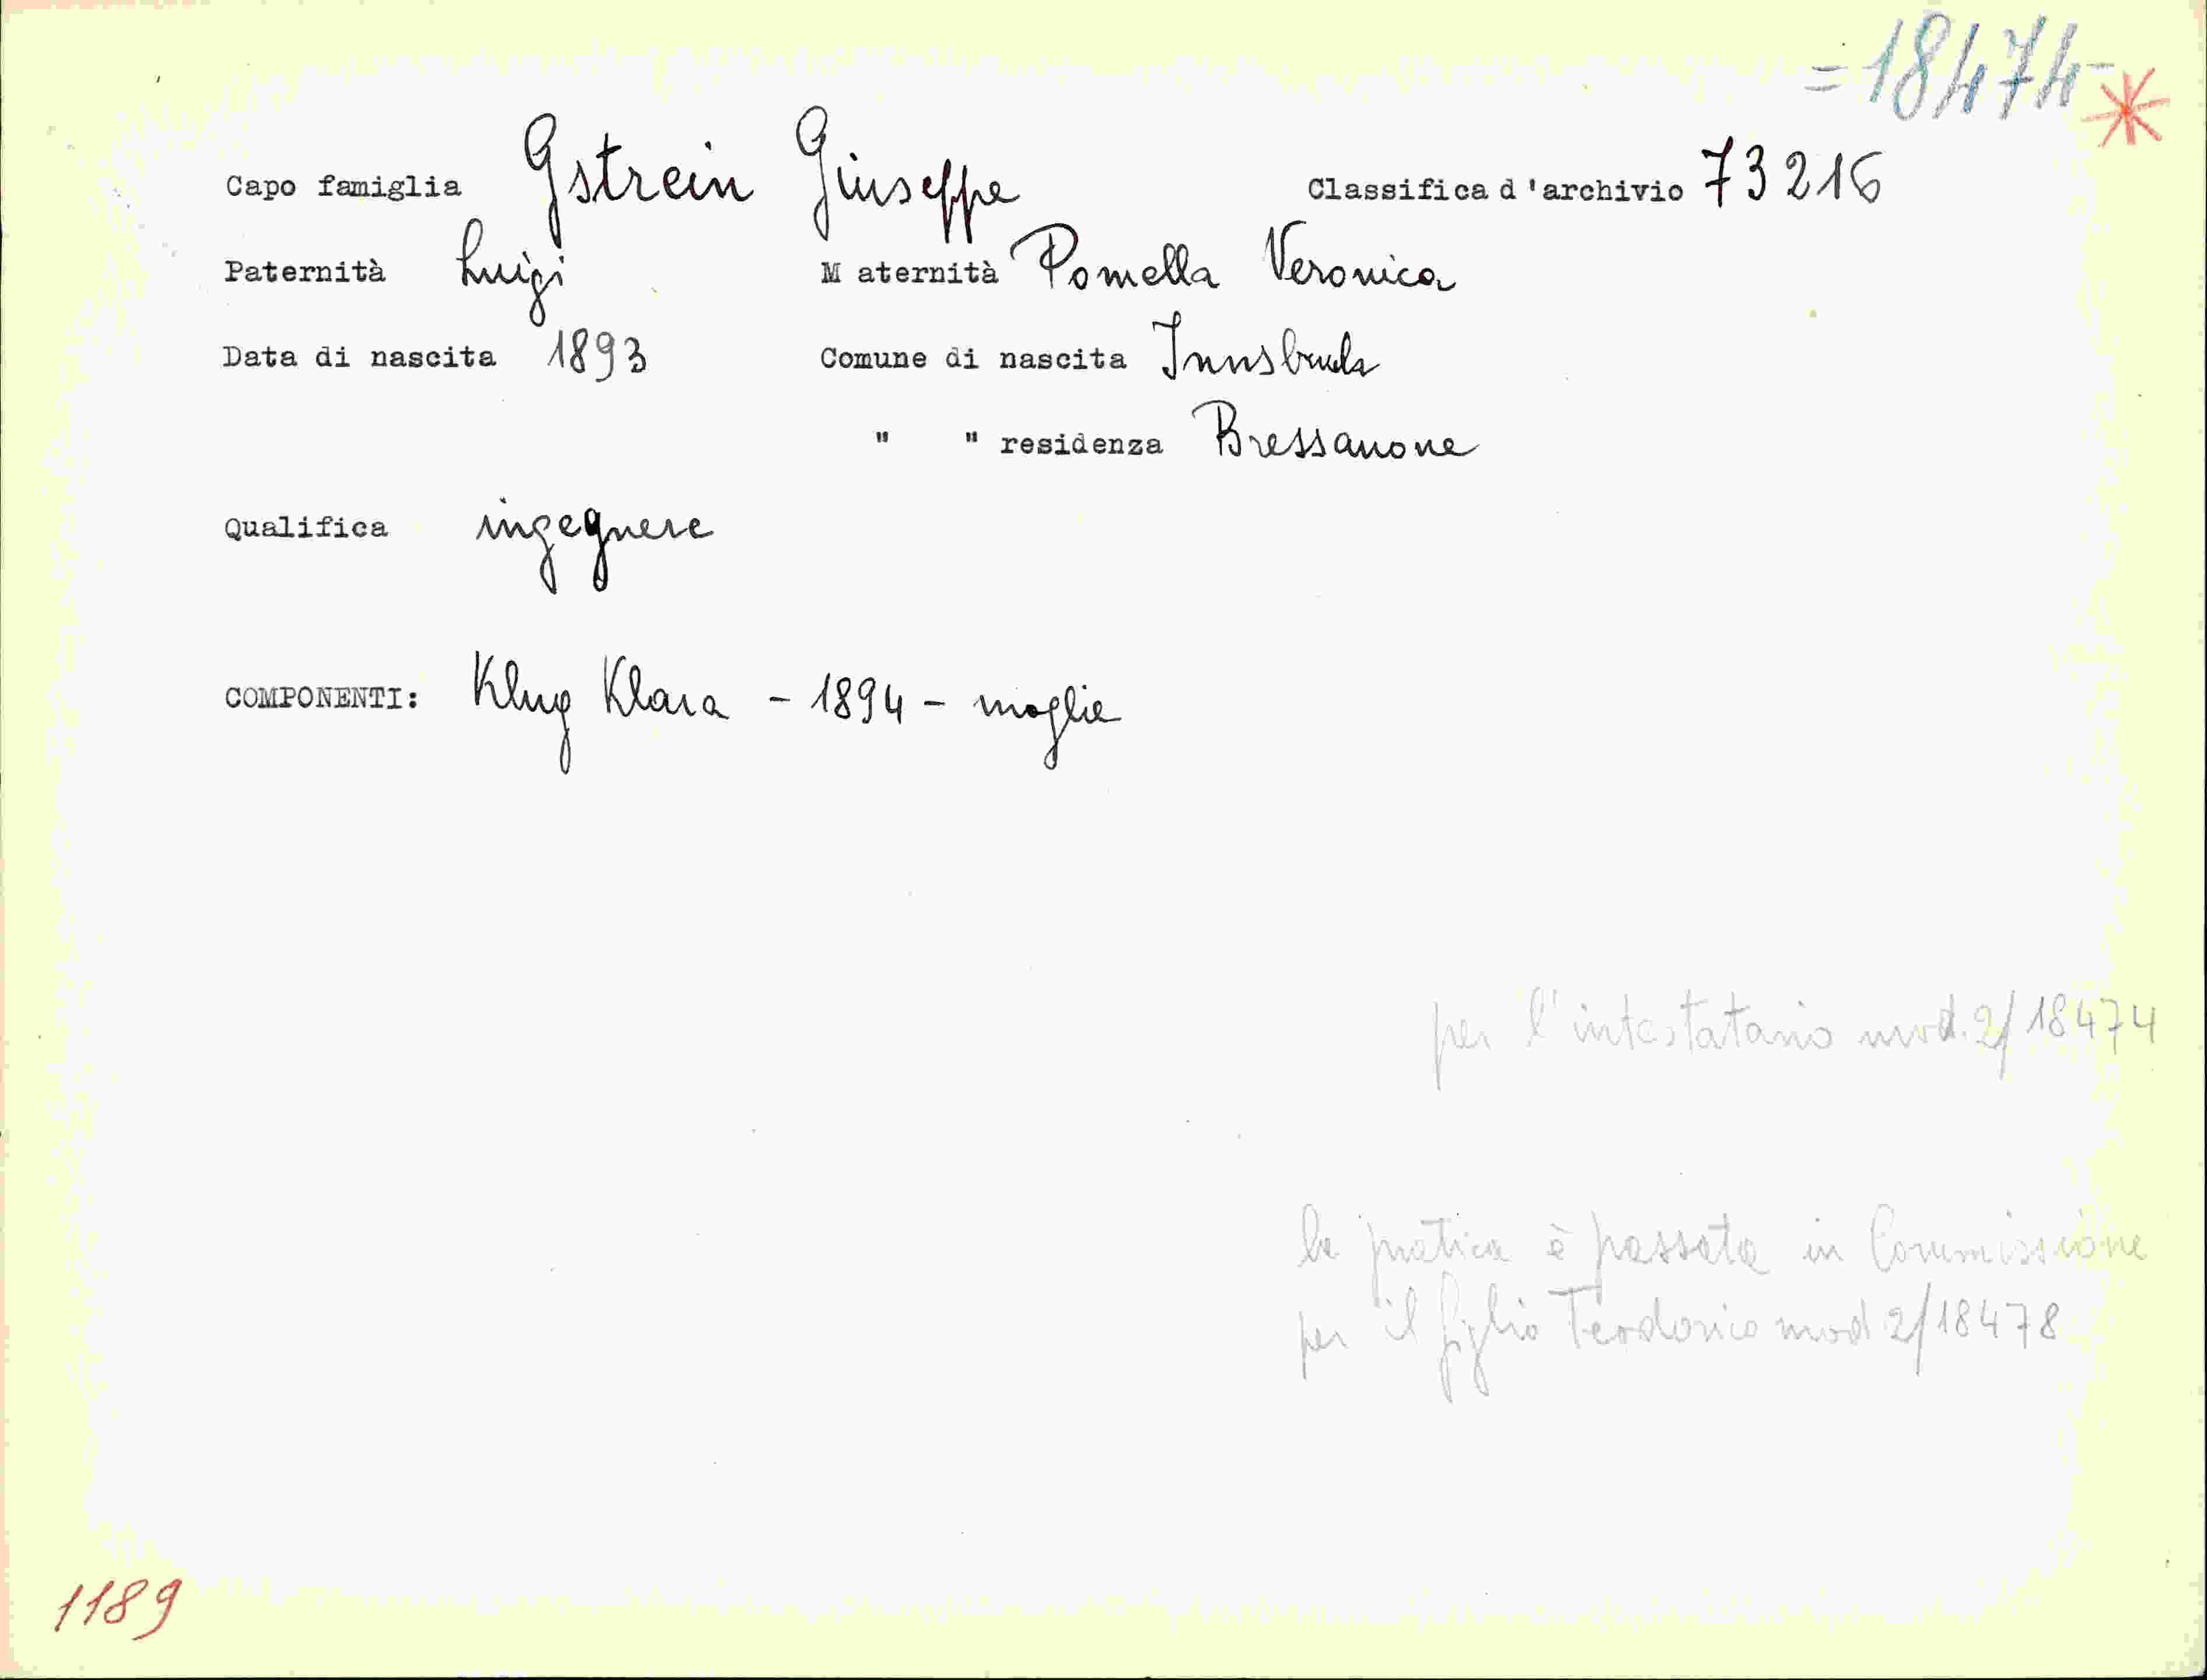 =18474=
Capo famiglia Gstrein Giuseppe Classifica d'archivio 73216
Paternità Luigi M aternità Pomella Veronica
Data di nascita 1893 Comune di nascita Innsbruck
" " residenza Bressanone
Qualifica ingegnere
COMPONENTI: Klug Klara - 1894 - moglie
per l'intestatario mod. 2/18474
la pratica è passata in Commissione
per il figlio Teodorico mod 2/18478
1189